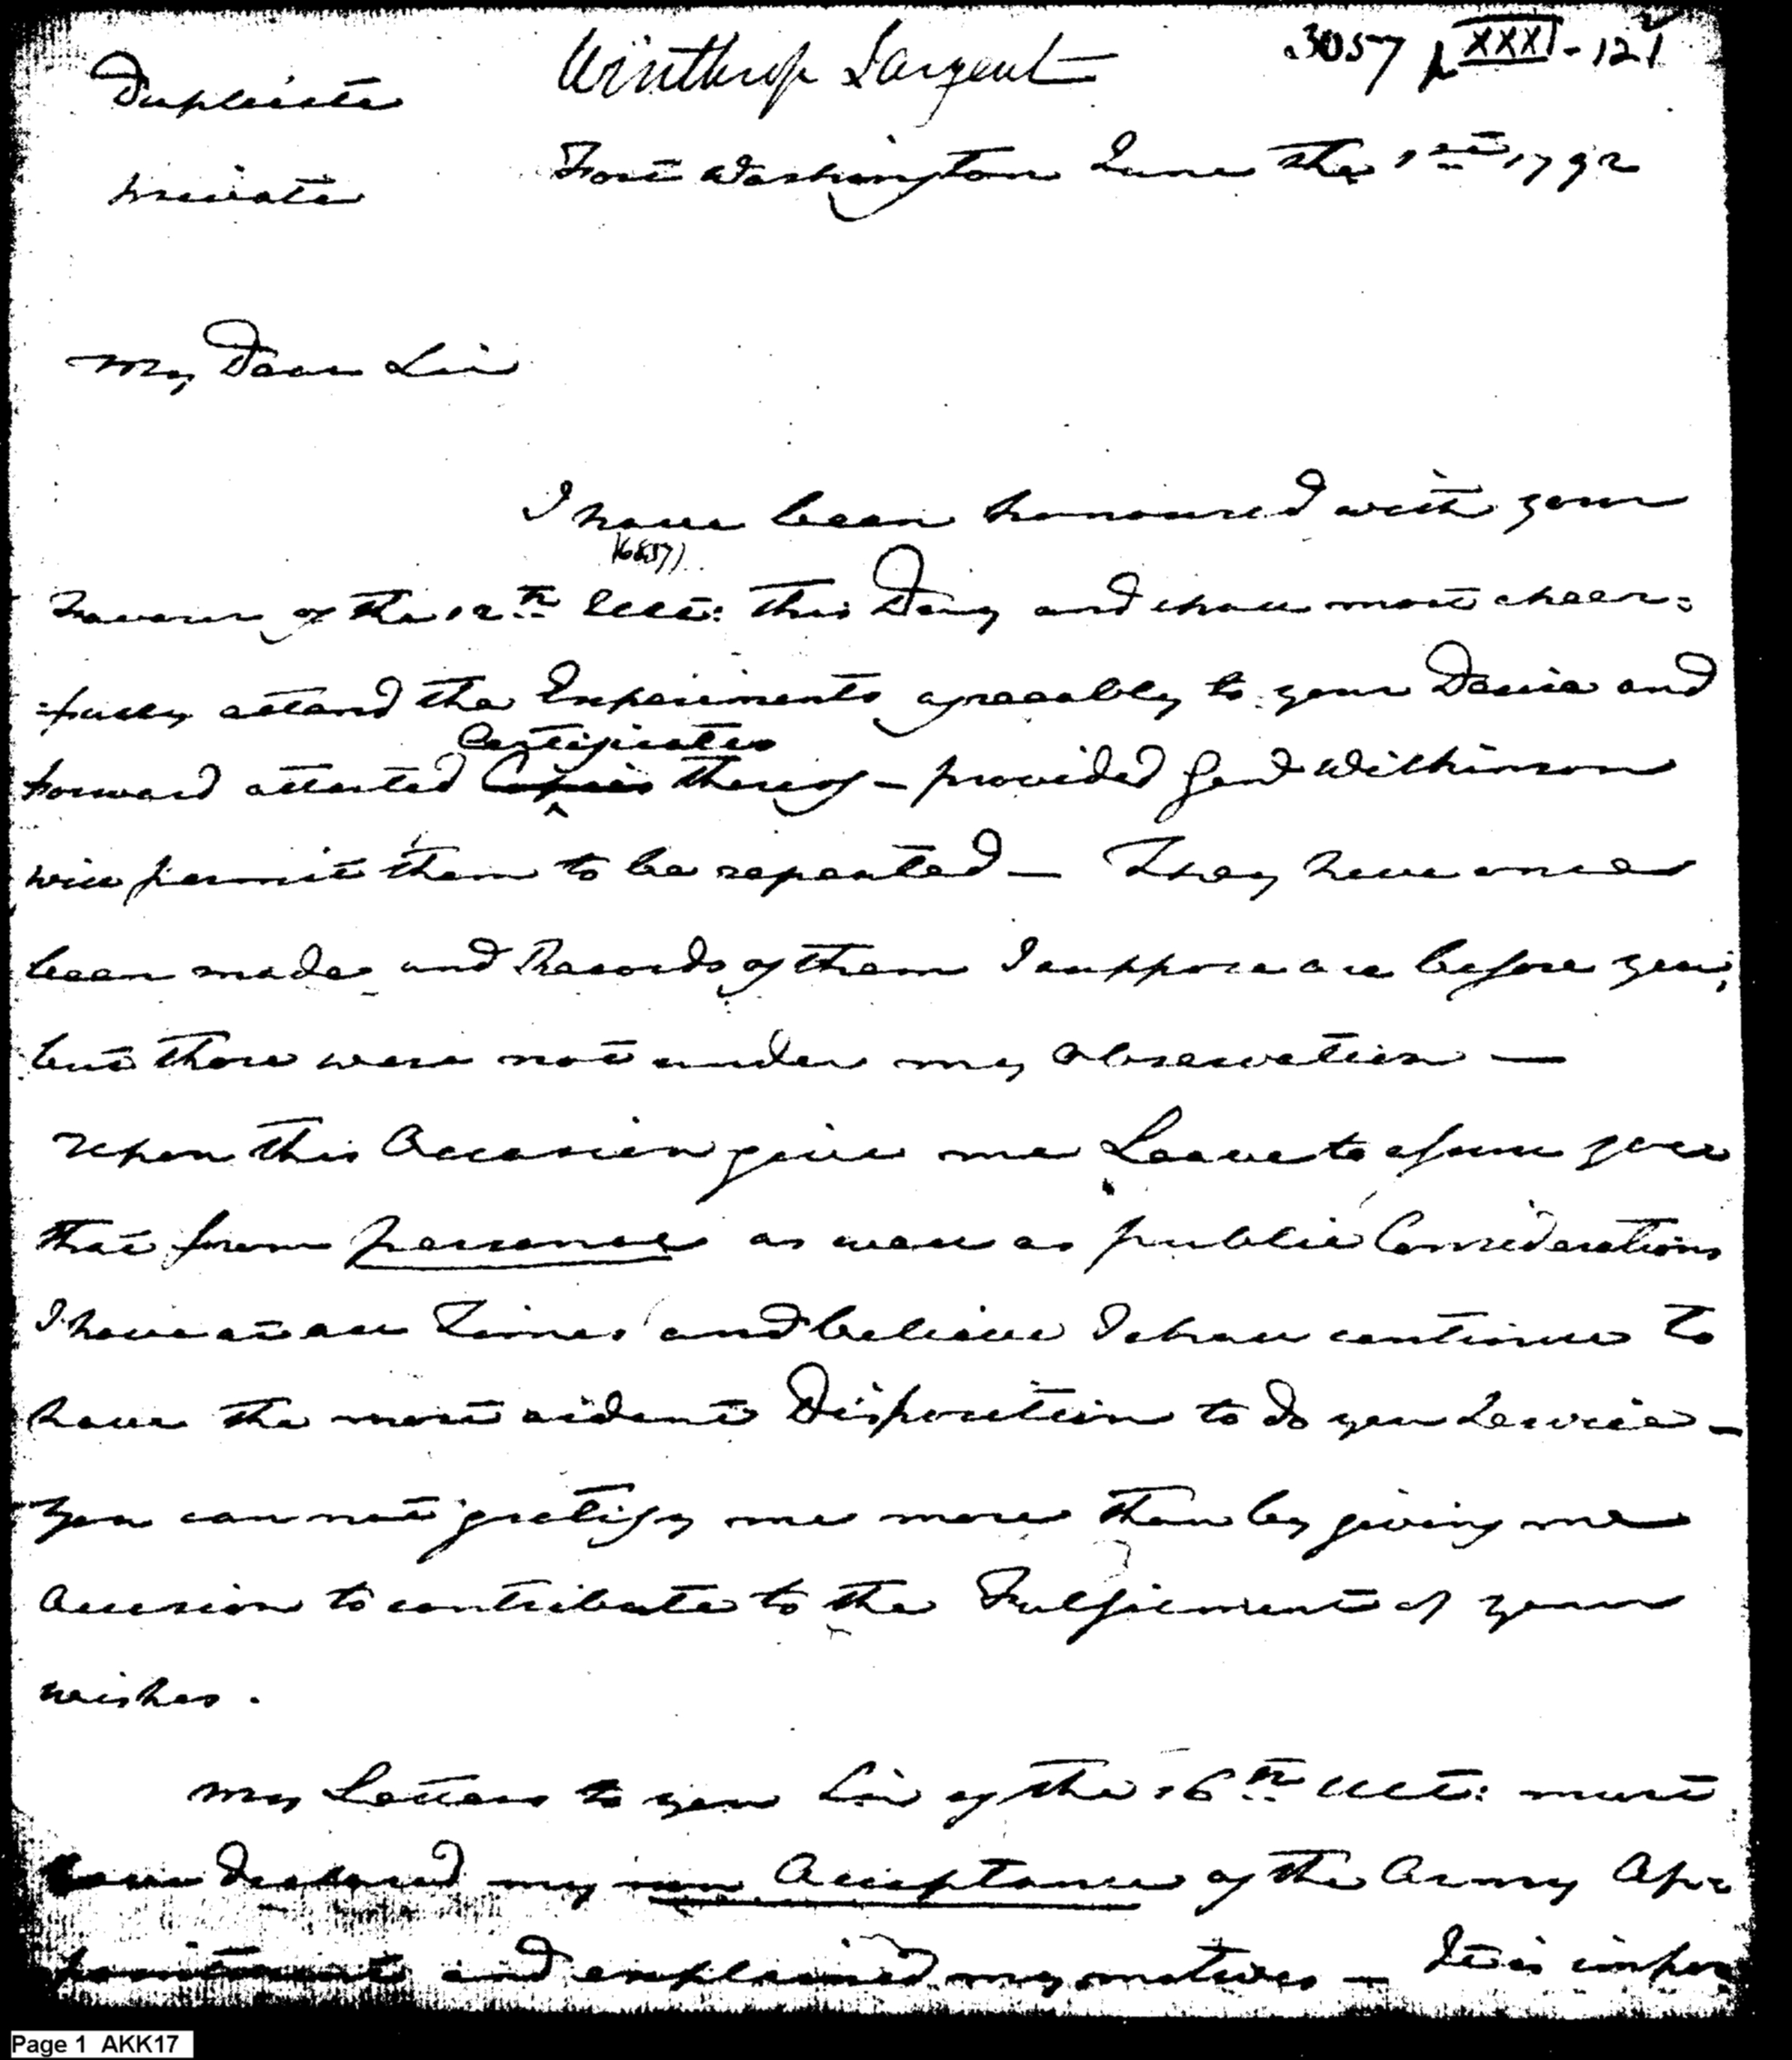 Winthrop Sargent
3057 XXXI-121
Duplicate
private
Fort Washington June the 1st 1792
My Dear Sir
I have been honoured with your
(6857)
Favour of the 12th Ult: this Day and shall most cheer=
=fully attend the Experiments agreeably to your Desire and
Certificates
forward attested Copies thereof — provided Genl Wilkinson
will permit them to be repeated — They have once
been made and Records of them I suppose are before you;
but those were not under my observation —
Upon this Occasion give me Leave to assure you
that from personal as well as public Considerations
I have at all Times and believe I shall continue to
have the most ardent Disposition to do you Service —
You can not gratify me more than by giving me
Occasion to contribute to the Fulfilment of your
wishes.
My Letters to you Sir of the 16th Ult: must
have declared my non Acceptance of the Army Ap=
pointment and explained my motives — It is impos
Page 1 AKK17